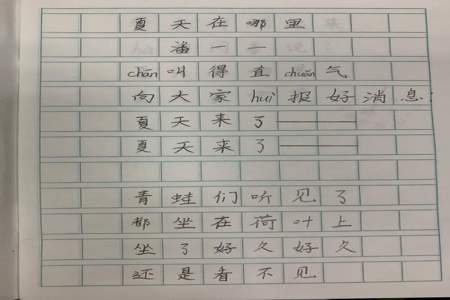 夏天在哪里
潘一一
chán叫得直chuǎn气
向大家huì报好消息
夏天来了——
夏天来了——
青蛙们听见了
都坐在荷叶上
坐了好久好久
还是看不见